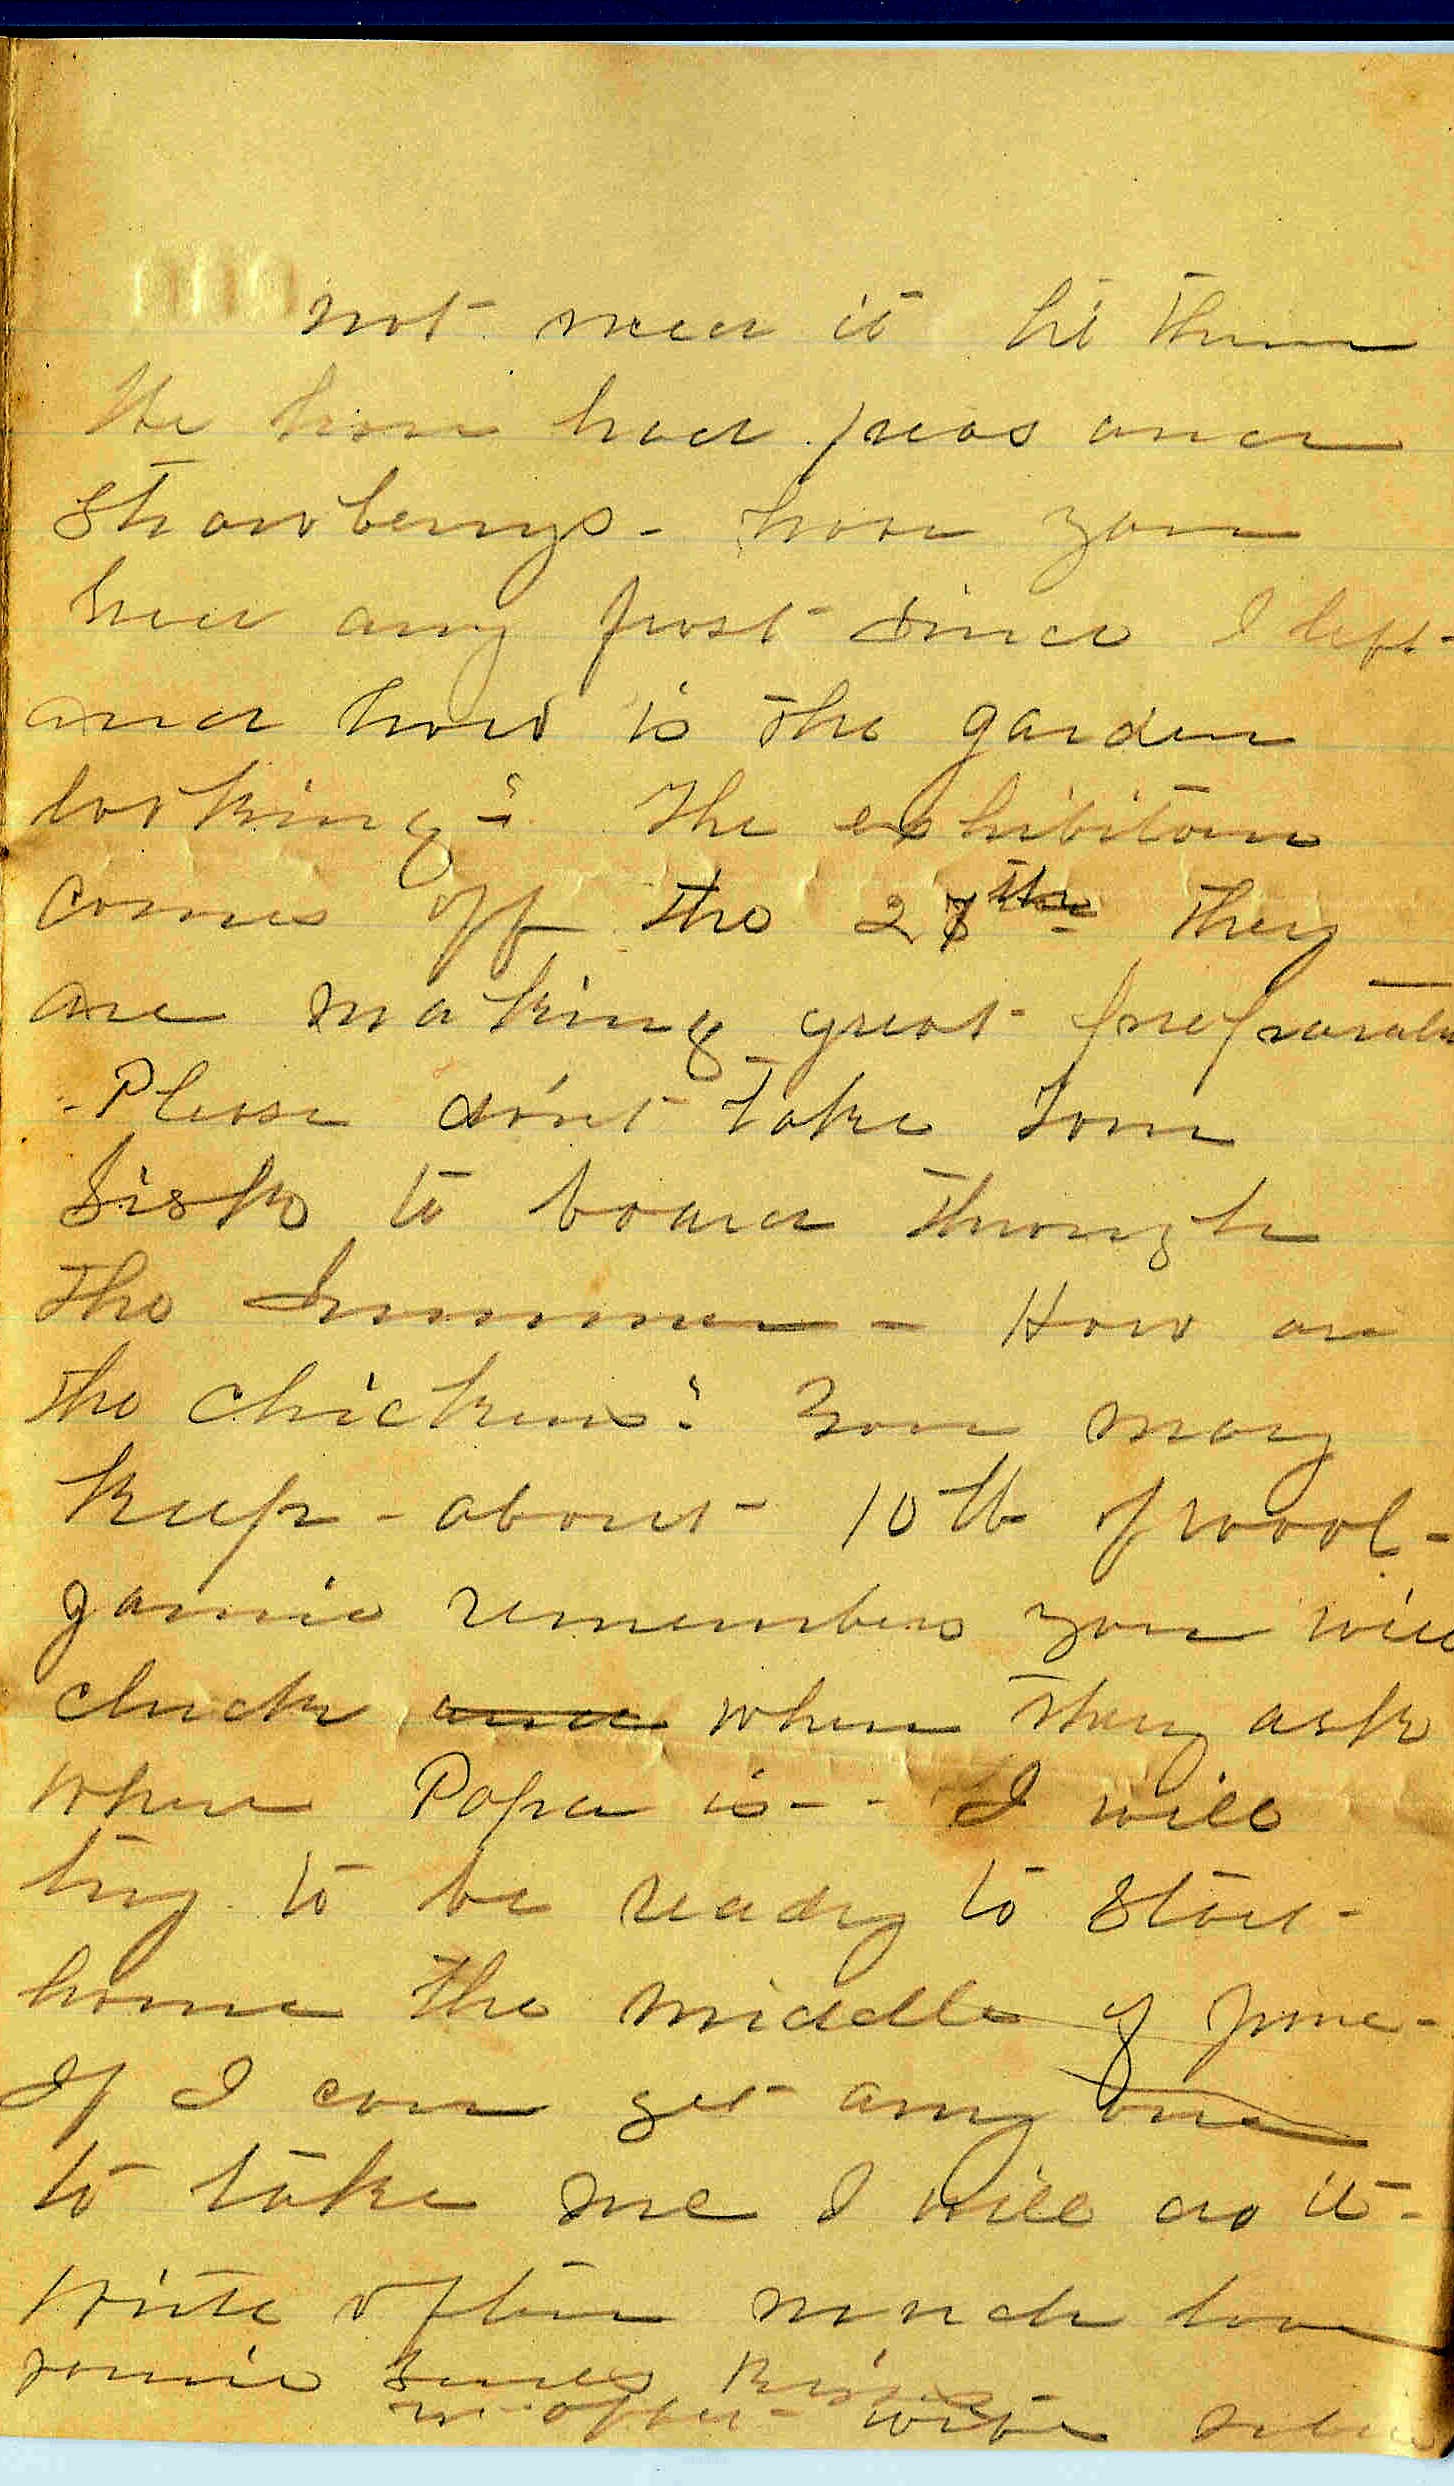 not need it let them
We have had peas and
Strawberrys - have you
had any frost since I left -
and how is the garden
looking? The exhibition
comes off the 27th They
are making great
Please don't take Tom
Sisk to board through
the Summer - How are
the chickens? You may
keep - about 10 lb of wool -
Jamie remembers you will
cluck and when they ask
where Papa is - - I will
try to be ready to start -
home the middle of June -
If I can get any one
to take me I will do it -
Write often much love
Jamie sends Kisses
wife